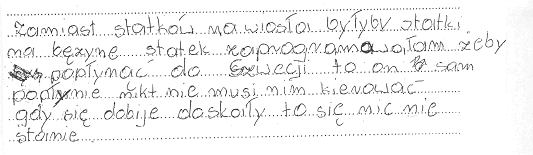 zamiast statków na wiosła byłyby statki
na bęzynę statek zaprogramowałam żeby
popłynąć do Szwecji to on sam
popłynie nikt nie musi nim kierować
gdy się dobije do skały to się nic nie
stanie